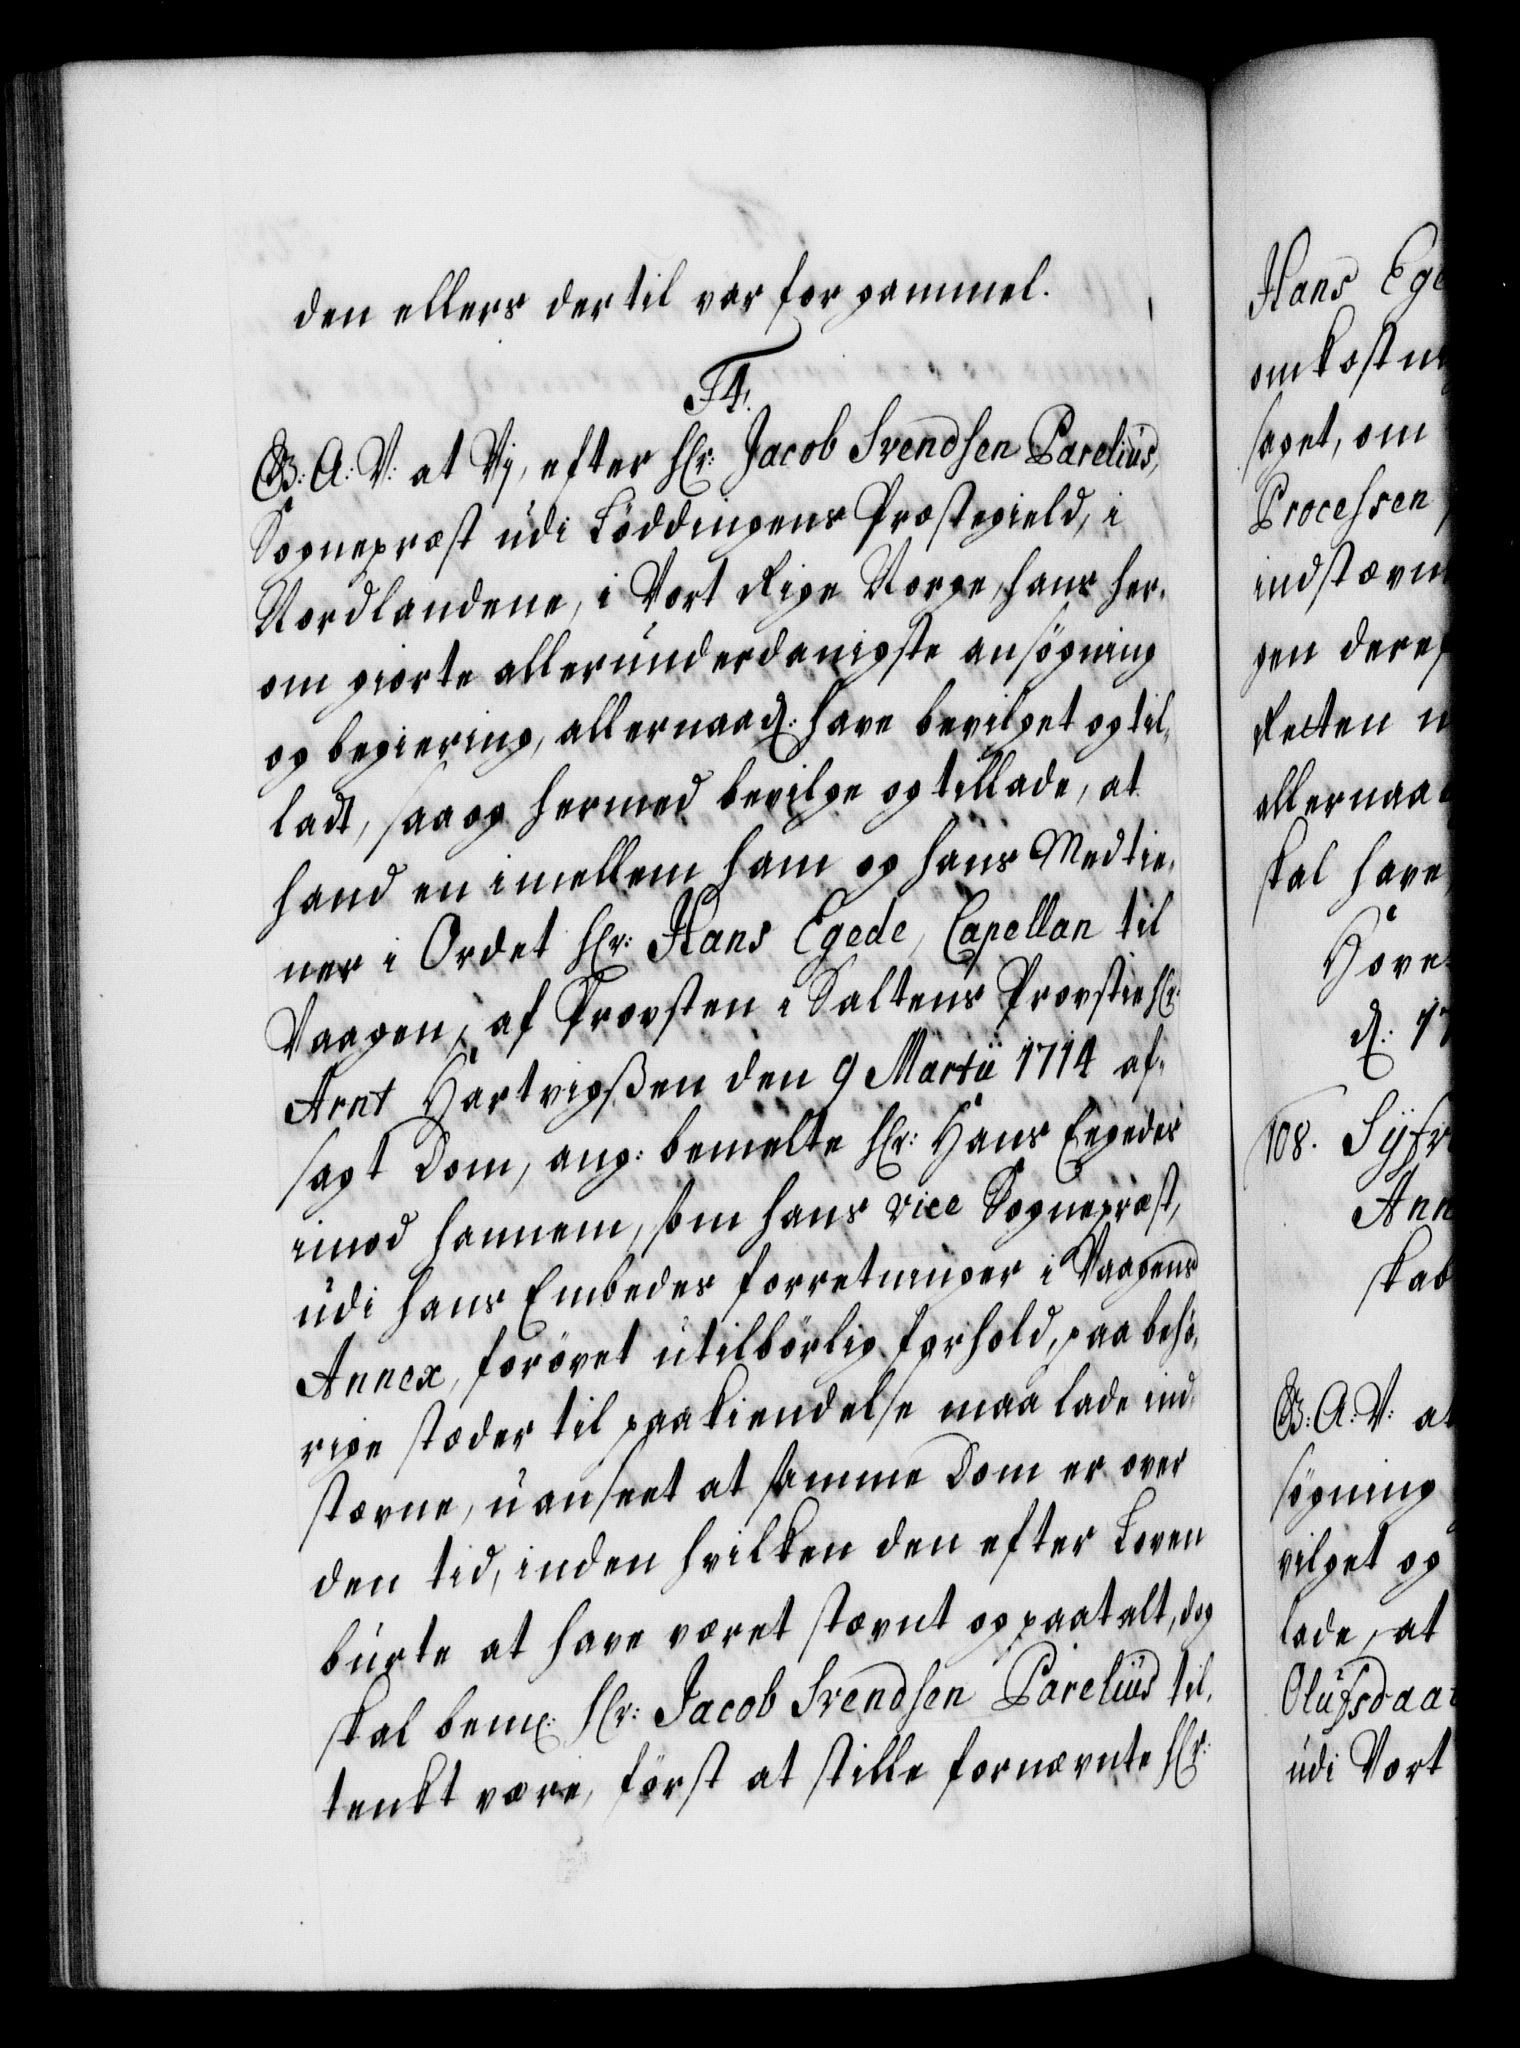 den ellers dertil var for gammel.
F4.
G: A: V: at Vj, efter hr: Jacob Svendsen Parelius,
Sognepræst udi Löddingens Præstegield, i
Nordlandene, i Vort Rige Norge, hans her-
om giorte allerunderdanigste ansögning
og begiering, allernaad: have bevilget og til-
ladt, saa og hermed bevilge og tillade, at
hand en imellem ham og hans Medtie-
ner i Ordet hr: Hans Egede, Capellan til
Vaagen, af Provsten i Saltens Provstie hr:
Arnt Hartvigßen den 9 Martii 1714 af-
sagt Dom, ang: bemelte hr: Hans Egedes
imod hannem, som hans vice Sognepræst,
udi hans Embedes forretninger i Vaagens
Annex, forövet utilbörlig forhold, paa behö-
rige stæder til paakiendelse maa lade ind-
stævne, uanseet at samme Dom er over
den tid, inden hvilken den efter Loven
burte at have været stævnt og paatalt, dog
skal bem: hr: Jacob Svendsen Parelius til-
tenkt være, först at stille fornævnte hr:
Hans Ege
omkostni
saget, om
Processen
indstævn
gen deref
Retten
allernaa
skal have
Hove
d: 17
108. Syfr
Ann
skab
G: A: V: at
søgning
vilget og
lade, at
Olufsdaa
udi Vort